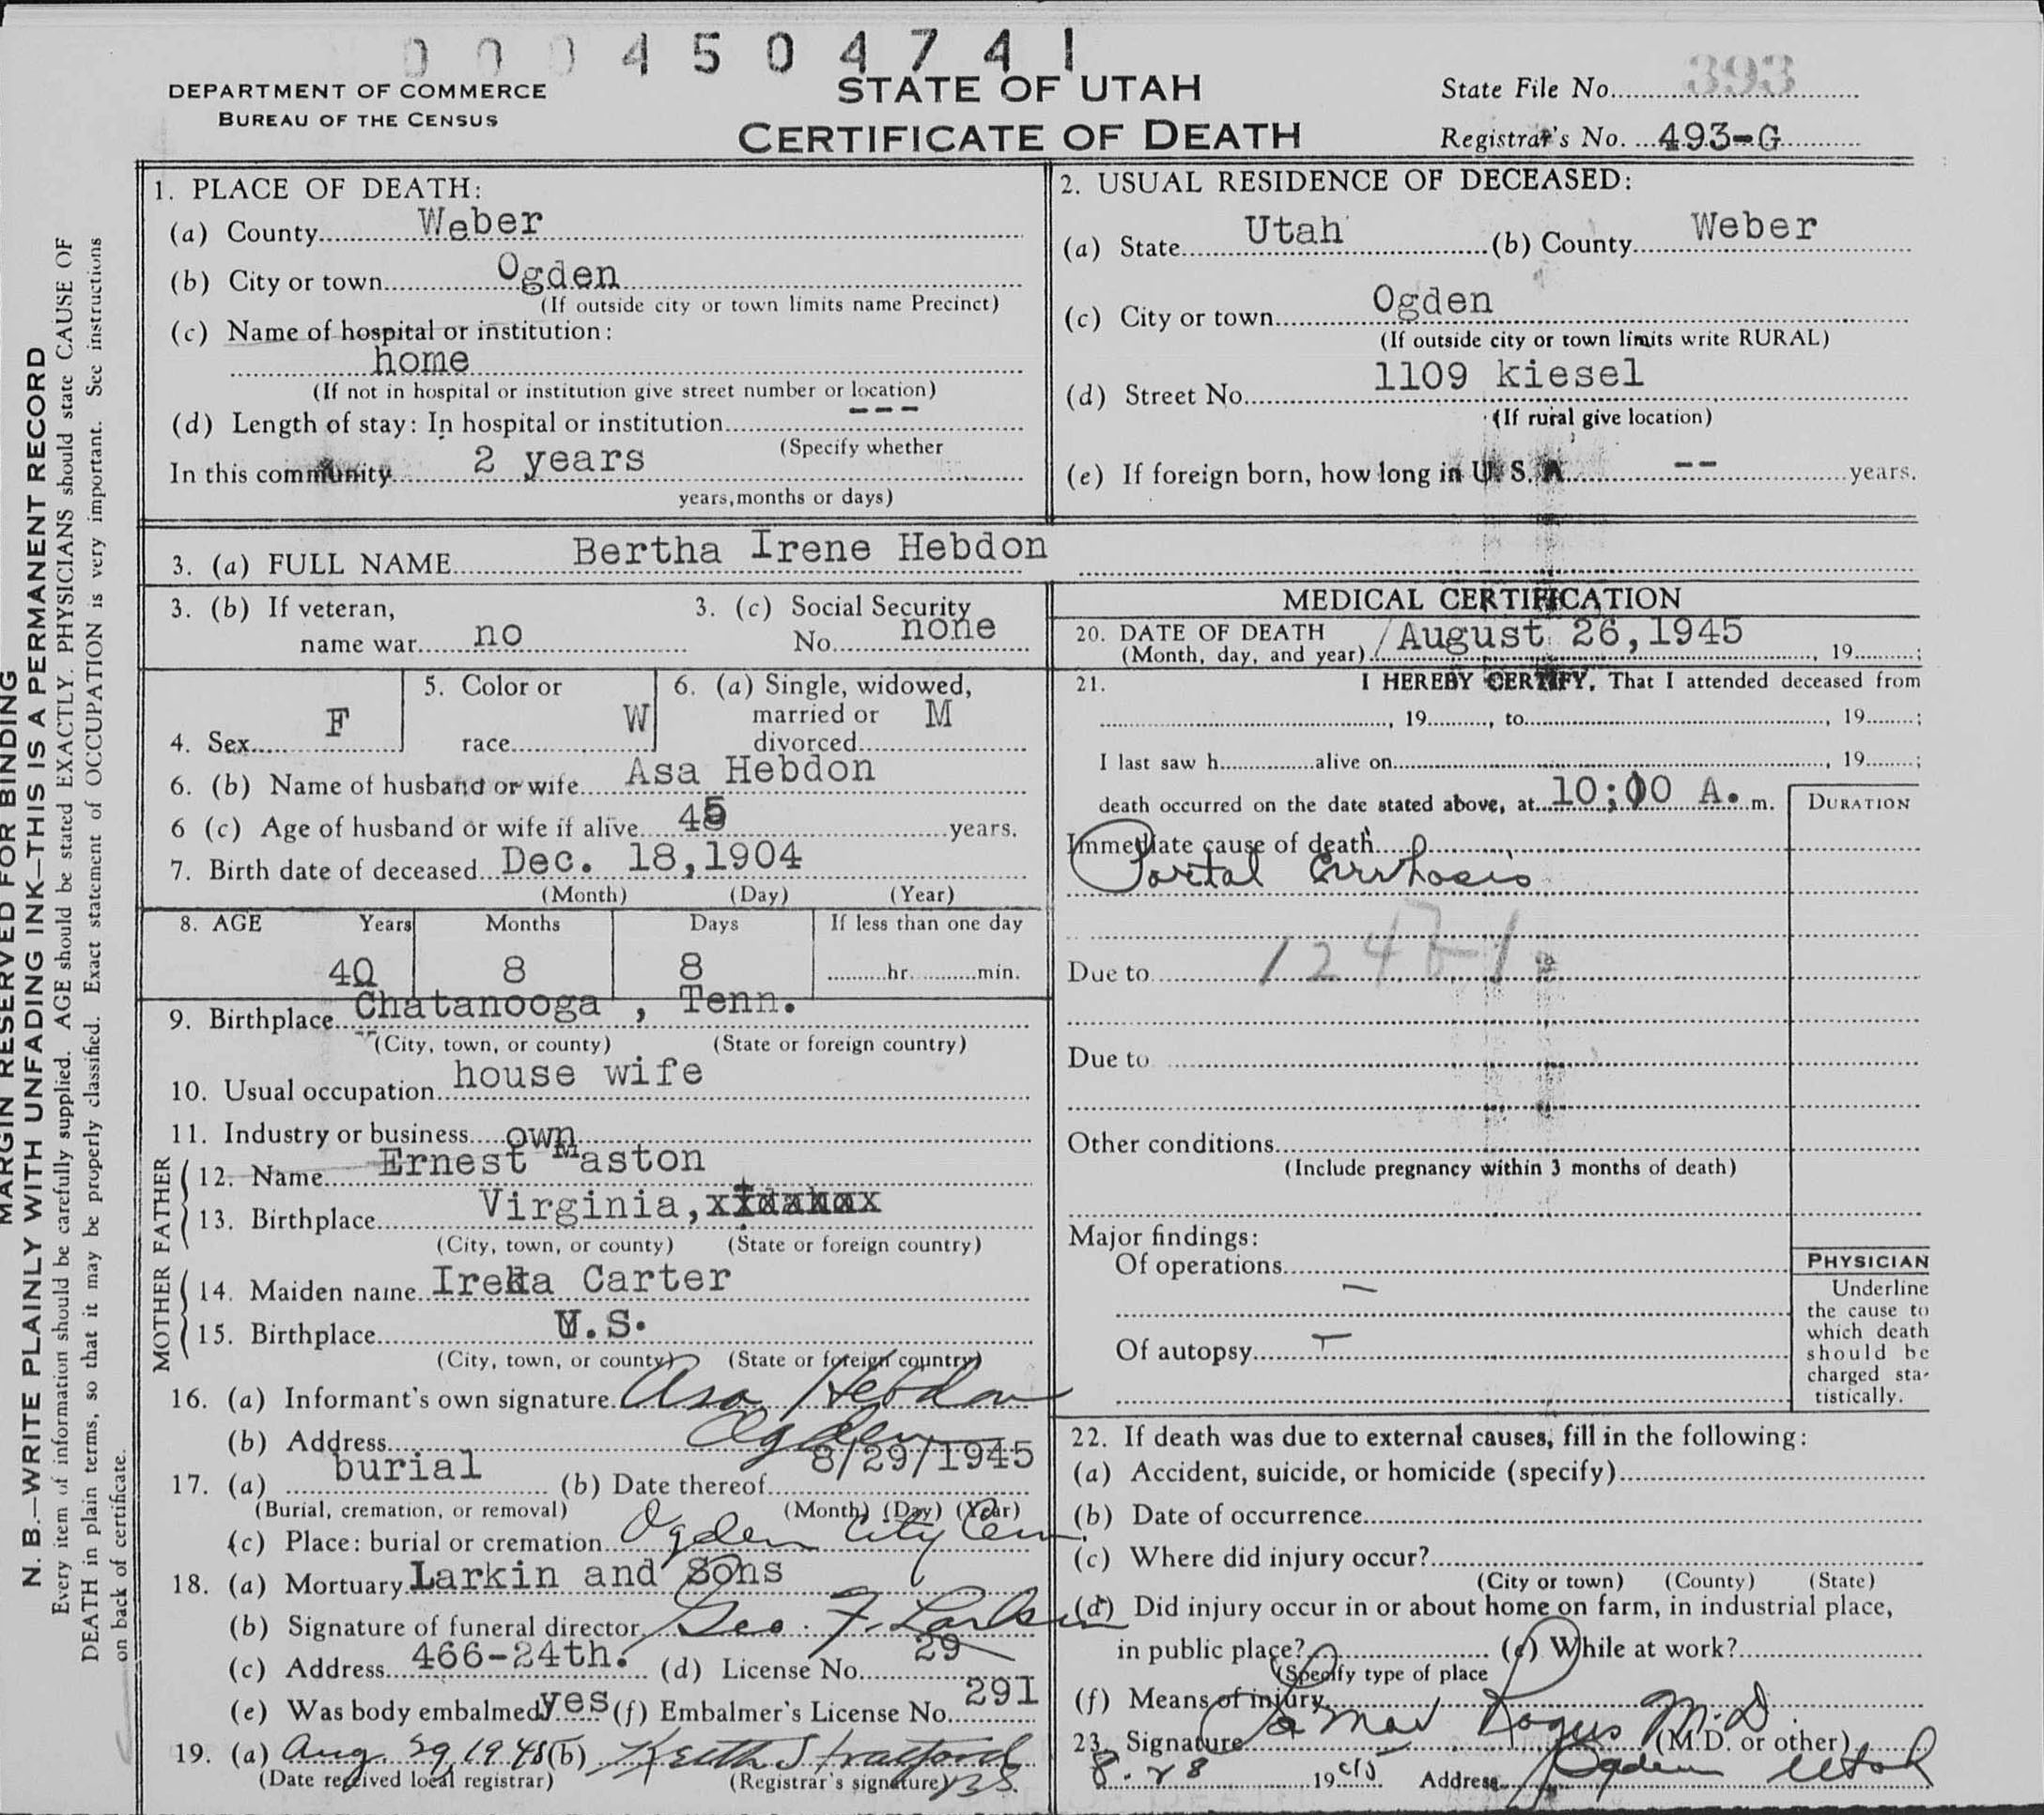 0 0 0 4 5 0 4 7 4 1
DEPARTMENT OF COMMERCE
BUREAU OF THE CENSUS
STATE OF UTAH
CERTIFICATE OF DEATH
State File No. 393
Registrar's No. 493-G
MARGIN RESERVED FOR BINDING
N. B.—WRITE PLAINLY WITH UNFADING INK—THIS IS A PERMANENT RECORD
Every item of information should be carefully supplied. AGE should be stated EXACTLY. PHYSICIANS should state CAUSE OF
DEATH in plain terms, so that it may be properly classified. Exact statement of OCCUPATION is very important. See instructions
on back of certificate.
1. PLACE OF DEATH:
(a) County Weber
(b) City or town Ogden
(If outside city or town limits name Precinct)
(c) Name of hospital or institution:
home
(If not in hospital or institution give street number or location)
(d) Length of stay: In hospital or institution ---
(Specify whether
In this community 2 years
years, months or days)
2. USUAL RESIDENCE OF DECEASED:
(a) State Utah (b) County Weber
(c) City or town Ogden
(If outside city or town limits write RURAL)
(d) Street No. 1109 kiesel
(If rural give location)
(e) If foreign born, how long in U. S. A. -- years.
3. (a) FULL NAME Bertha Irene Hebdon
3. (b) If veteran,
name war no
3. (c) Social Security
No. none
4. Sex F
5. Color or
race W
6. (a) Single, widowed,
married or M
divorced
6. (b) Name of husband or wife Asa Hebdon
6 (c) Age of husband or wife if alive 45 years.
7. Birth date of deceased Dec. 18,1904
(Month) (Day) (Year)
8. AGE Years Months Days If less than one day
40 8 8 hr. min.
9. Birthplace Chatanooga , Tenn.
(City, town, or county) (State or foreign country)
10. Usual occupation house wife
11. Industry or business own
FATHER
12. Name Ernest Maston
13. Birthplace Virginia,
(City, town, or county) (State or foreign country)
MOTHER
14. Maiden name Carter
15. Birthplace U.S.
(City, town, or county) (State or foreign country)
16. (a) Informant's own signature Asa Hebdon
(b) Address Ogden
17. (a) burial (b) Date thereof 8/29/1945
(Burial, cremation, or removal) (Month) (Day) (Year)
(c) Place: burial or cremation Ogden City Cem.
18. (a) Mortuary Larkin and Sons
(b) Signature of funeral director Geo. F. Larkin
(c) Address 466-24th. (d) License No. 29
(e) Was body embalmed yes (f) Embalmer's License No. 291
19. (a) Aug. 29 1945 (b) Keith Stratford
(Date received local registrar) (Registrar's signature)
MEDICAL CERTIFICATION
20. DATE OF DEATH August 26,1945
(Month, day, and year) , 19 ;
21. I HEREBY CERTIFY, That I attended deceased from
, 19 , to , 19 ;
I last saw h alive on , 19 ;
death occurred on the date stated above, at 10:00 A. m.
DURATION
Immediate cause of death
Portal Cirrhosis
Due to
Due to
Other conditions
(Include pregnancy within 3 months of death)
Major findings:
Of operations
Of autopsy
PHYSICIAN
Underline
the cause to
which death
should be
charged sta-
tistically.
22. If death was due to external causes, fill in the following:
(a) Accident, suicide, or homicide (specify)
(b) Date of occurrence
(c) Where did injury occur?
(City or town) (County) (State)
(d) Did injury occur in or about home on farm, in industrial place,
in public place? (e) While at work?
(Specify type of place
(f) Means of injury
23. Signature M.D. (M.D. or other)
8-28 1945 Address Ogden Utah